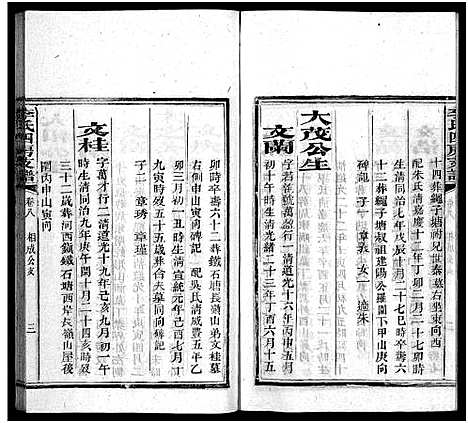 李氏四房支譜
十四葬繩子塘兄世泰墓右坐東向西
配朱氏清嘉慶十二年丁卯三月二十七卯時
生清同治七年戊辰十一月二十七巳時卒壽六
十二葬繩子塘叔祖建陽公園下甲山庚向
碑記 子一 章義 女一 適朱
大茂公生
文蘭
字 號萬懿行一清道光十六年丙申五月
時生清光緒二十三年丁酉六月十五
時卒壽六十二葬鐵石塘長嶺山弟文桂墓
右側申山寅向碑記 配吳氏清咸豐五年乙
卯三月初一丑時生清宣統元年己酉七月
九寅時歿壽五十五歲葬合夫墓同向碑記
子二 章琇 章瑾
文桂
字萬才行二清道光十九年己亥九月初一午
時生清同治九年庚午閏十月二十四亥時歿
三十二歲葬河西鐵鐵石塘西岸長嶺山屋後
園內申山寅向
李氏四房支譜
卷八 相成公支
三